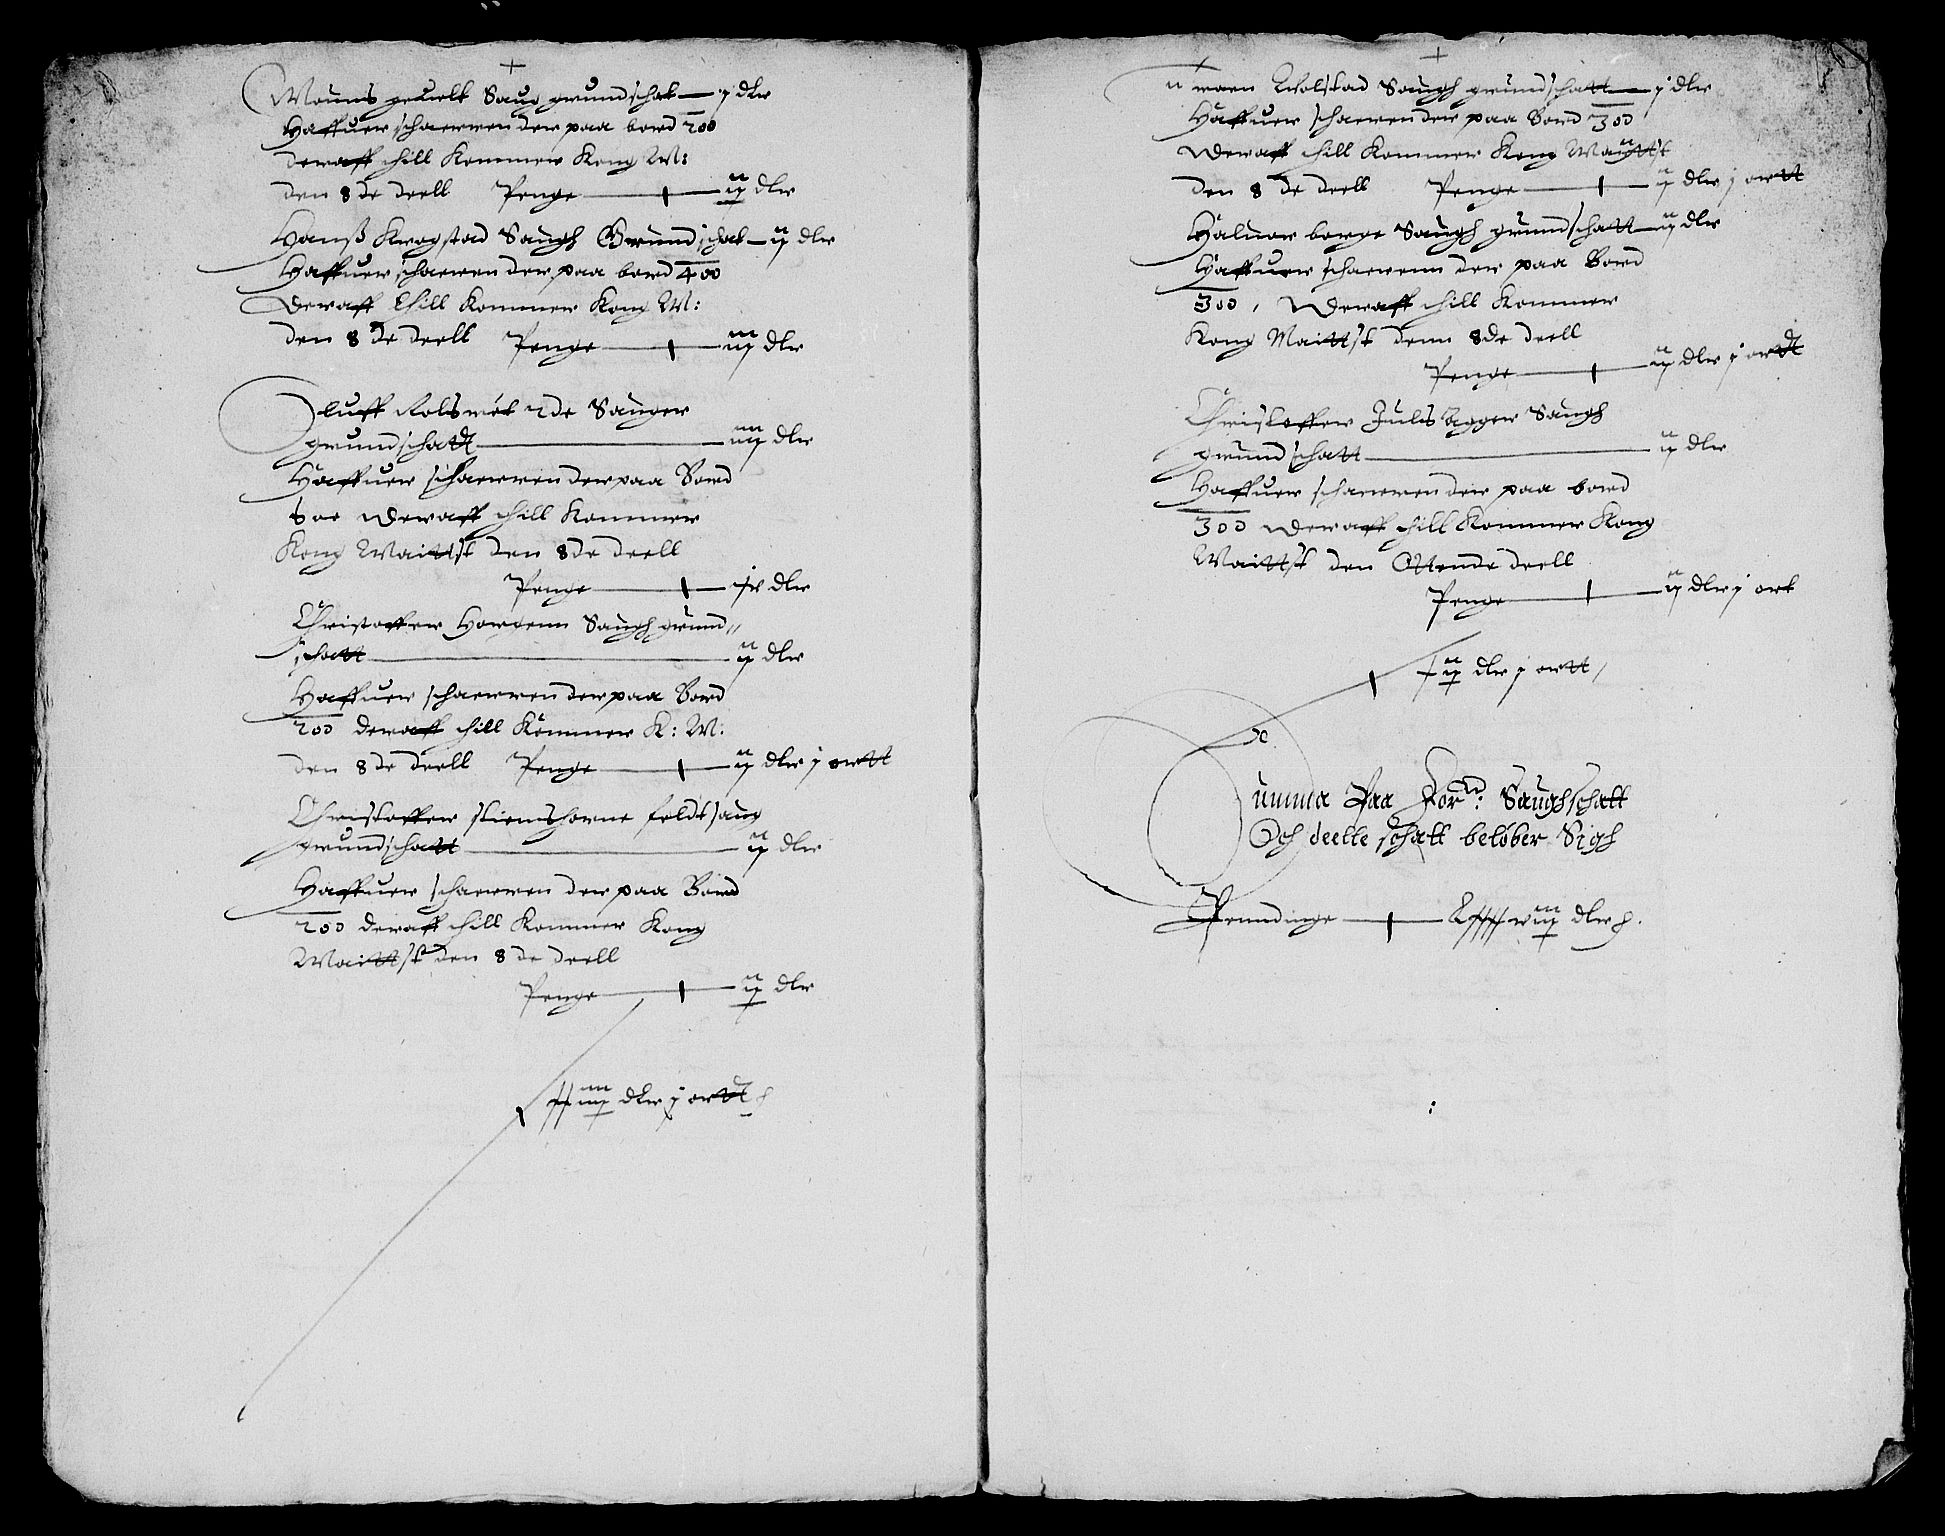 Mouns geuelt Saug grundschat — j dlr
Haffuer schaerren der paa bord 200
deraff thill Kommer Kong M:
den 8 de deell Penge — ij dlr
Hanß Krogstad Saugh Grundschat — ij dlr
Haffuer schaeren der paa bord 400
Deraff thill Kommer Kong M:
den 8 de deell Penge — iij dlr
Oluff Rolsuiek 2 de Sauger
grundschatt — iiij dlr
Haffuer schaerren der paa Bord
deraff thill Kommer
Kong Maittst den 8 de deell
Penge — dlr
Christoffer Horgenn Saugh grund
schatt — ij dlr
Haffuer schaerren der paa Bord
200 deraff thill Kommer K: M:
den 8 de deell Penge — ij dlr j ortt
Christoffer stiernshorne feldt saug
grundschatt — ij dlr
Haffuer schaerren der paa Bord
200 deraff thill Kommer Kong
Maittst den 8 de deell
Penge — ij dlr
xxiiij dlr j ortt
Wolstad Saugh grundschatt — j dlr
Haffuer schaeren der paa Bord 300
Deraff thill Kommer Kong Mayttst
den 8 de deell Penge — ij dlr j ortt
Haluor borge Saugh grundschatt — ij dlr
Haffuer schaerenn der paa Bord
300, Deraff thill Kommer
Kong Maittst denn 8 de deell
Penge — ij dlr j ortt
Christoffer Juls Agger Saugh
grundschatt — ij dlr
Haffuer schaerren der paa bord
300 Deraff thill Kommer Kong
Maittst den Ottende deell
Penge — ij dlr j ort
xij dlr j ortt
Summa Paa Forn: Saughschatt
Och deelle schatt beløber Sigh
Penndinge — Lxxxxviij dlr